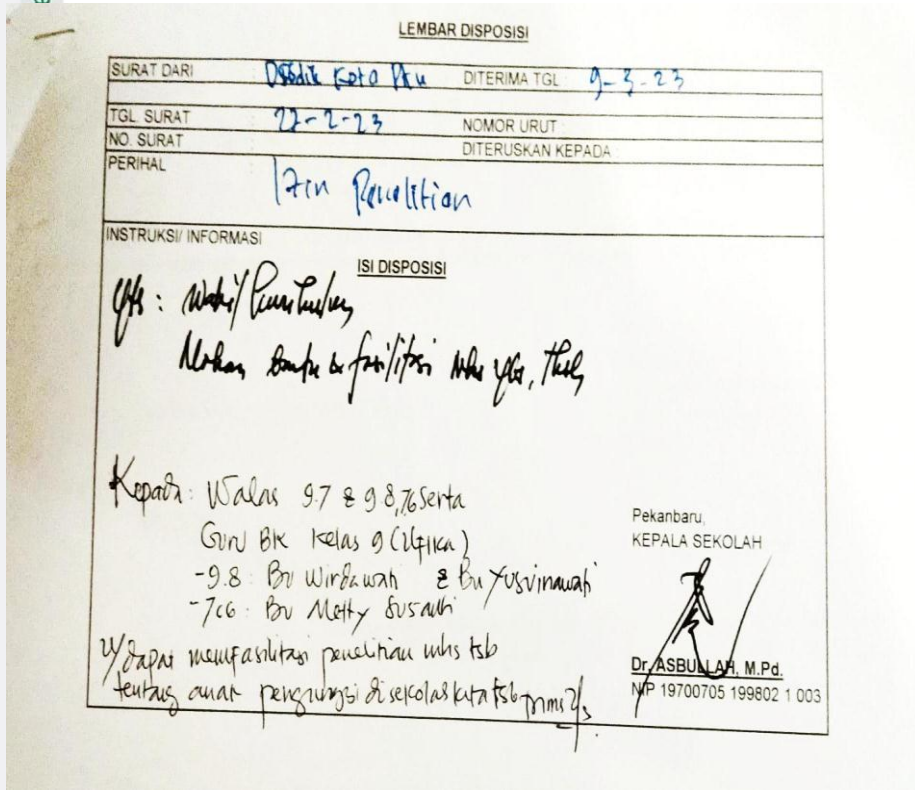 LEMBAR DISPOSISI
SURAT DARI : Disdik Kota Pku DITERIMA TGL : 9-3-23
TGL SURAT : 27-2-23 NOMOR URUT :
NO. SURAT DITERUSKAN KEPADA :
PERIHAL
Izin Penelitian
INSTRUKSI/ INFORMASI
ISI DISPOSISI
Yth : Wakil Kurikulum
Mohon bantu & fasilitasi Mhs ybs,
Kepada : Walas 9.7 & 9 8, 76 Serta
Guru BK Kelas 9 (
-9.8 : Bu Wirdawati & Bu Yusvinawati
-7c6 : Bu Metty Susanti
U/ dapat memfasilitasi penelitian mhs tsb
tentang anak pengungsi di sekolah kita tsb
Pekanbaru,
KEPALA SEKOLAH
Dr. ASBULLAH, M.Pd.
NIP 19700705 199802 1 003